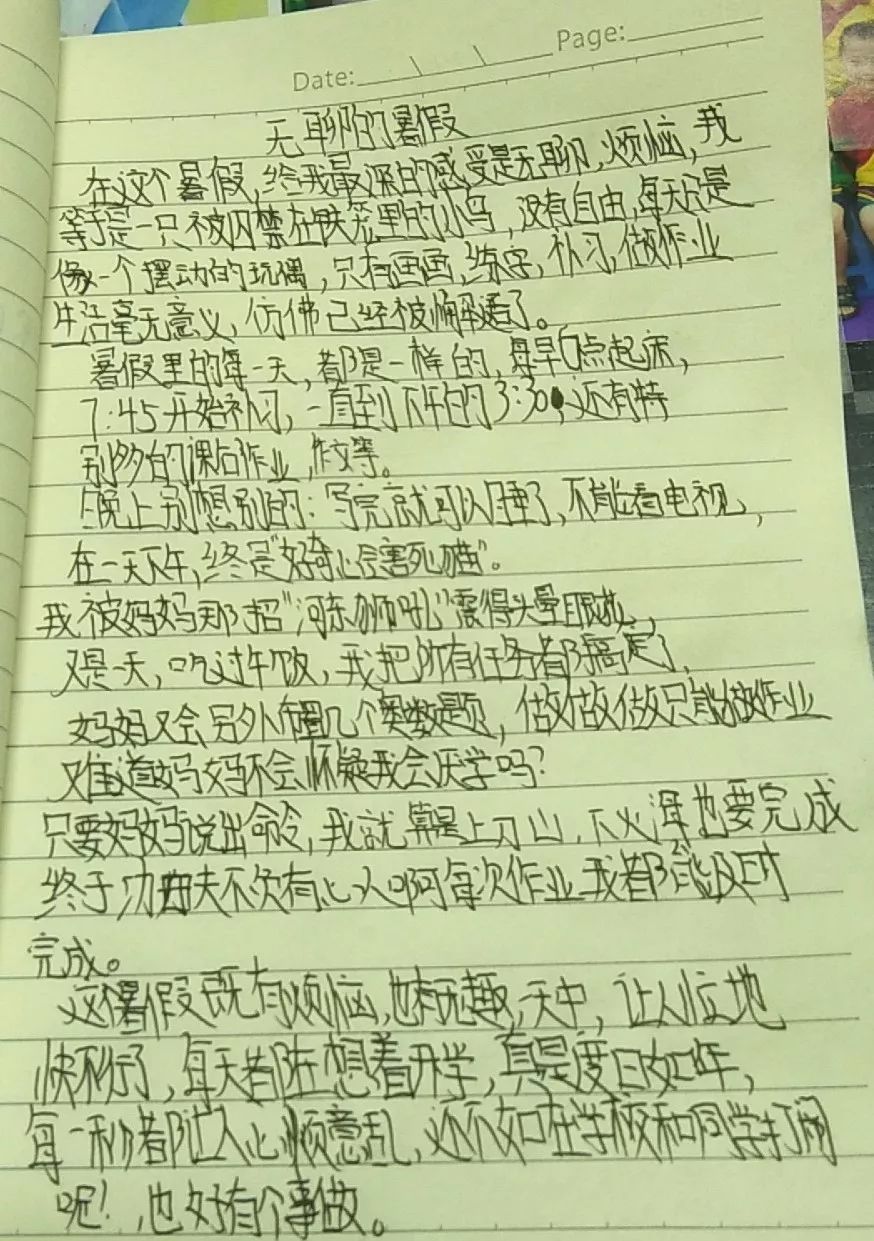 Date:
Page:
无聊的暑假
在这个暑假,给我最深的感受是无聊,烦恼,我
等于是一只被囚禁在铁笼里的小鸟,没有自由,每天只是
像一个摆动的玩偶,只有画画,练字,补习,做作业
生活毫无意义,仿佛已经被懈透了。
暑假里的每一天,都是一样的,每早6点起床,
7:45开始补习,一直到下午的3:30,还有特
别多的课后作业,作文等。
晚上别想别的:写完就可以睡了,不能看电视,
在一天下午,终是"好奇心害死猫"。
我被妈妈那招"河东狮吼"震得头晕眼
又是一天,吃过午饭,我把所有任务都搞定了,
妈妈又会另外布置几个奥数题,做做做只能做作业
难道妈妈不会怀疑我会厌学吗?
只要妈妈说出命令,我就算是上刀山,下火海也要完成
终于功夫不负有心人啊每次作业我都能及时
完成。
这暑假既有烦恼,也有无趣,天中,让人
快不行了,每天都在想着开学,真是度日如年,
每一秒都让人心烦意乱,还不如在学校和同学打闹
呢!,也好有个事做。